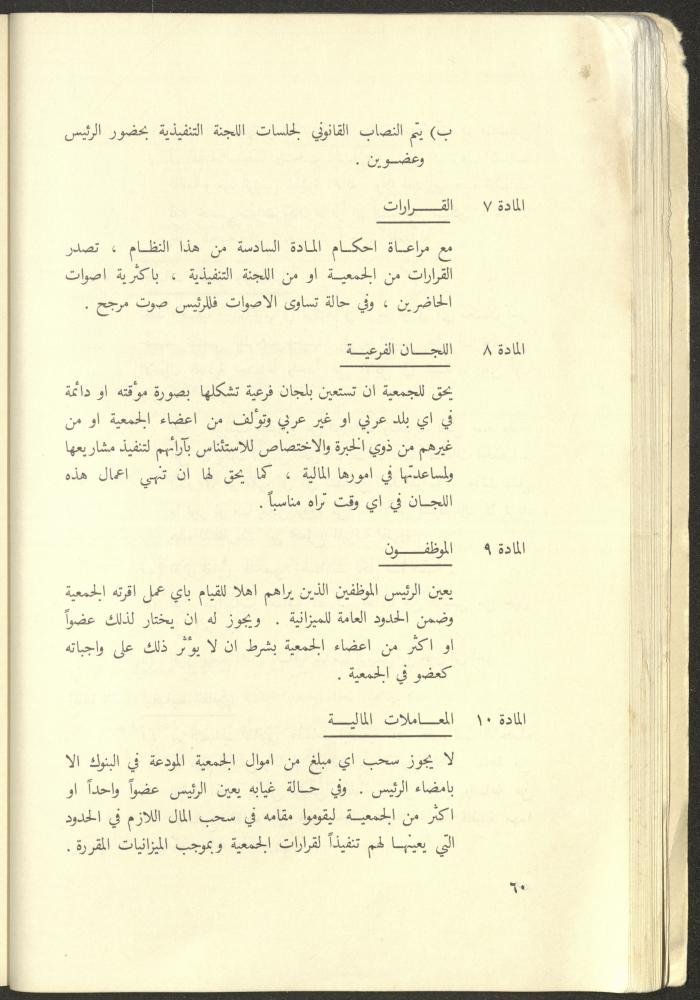 ب) يتم النصاب القانوني لجلسات اللجنة التنفيذية بحضور الرئيس
وعضوين .
المادة ٧ القرارات
مع مراعاة احكام المادة السادسة من هذا النظام ، تصدر
القرارات من الجمعية او من اللجنة التنفيذية ، باكثرية اصوات
الحاضرين ، وفي حالة تساوى الاصوات فللرئيس صوت مرجح .
المادة ٨ اللجان الفرعية
يحق للجمعية ان تستعين بلجان فرعية تشكلها بصورة موٴقته او دائمة
في اي بلد عربي او غير عربي وتوٴلف من اعضاء الجمعية او من
غيرهم من ذوي الخبرة والاختصاص للاستئناس بآرائهم لتنفيذ مشاريعها
ولمساعدتها في امورها المالية ، كما يحق لها ان تنهي اعمال هذه
اللجان في اي وقت تراه مناسباً .
المادة ٩ الموظفون
يعين الرئيس الموظفين الذين يراهم اهلا للقيام باي عمل اقرته الجمعية
وضمن الحدود العامة للميزانية . ويجوز له ان يختار لذلك عضواً
او اكثر من اعضاء الجمعية بشرط ان لا يوٴثر ذلك على واجباته
كعضو في الجمعية .
المادة ١٠ المعاملات المالية
لا يجوز سحب اي مبلغ من اموال الجمعية المودعة في البنوك الا
بامضاء الرئيس . وفي حالة غيابه يعين الرئيس عضواً واحداً او
اكثر من الجمعية ليقوموا مقامه في سحب المال اللازم في الحدود
التي يعينها لهم تنفيذاً لقرارات الجمعية وبموجب الميزانيات المقررة .
٦٠